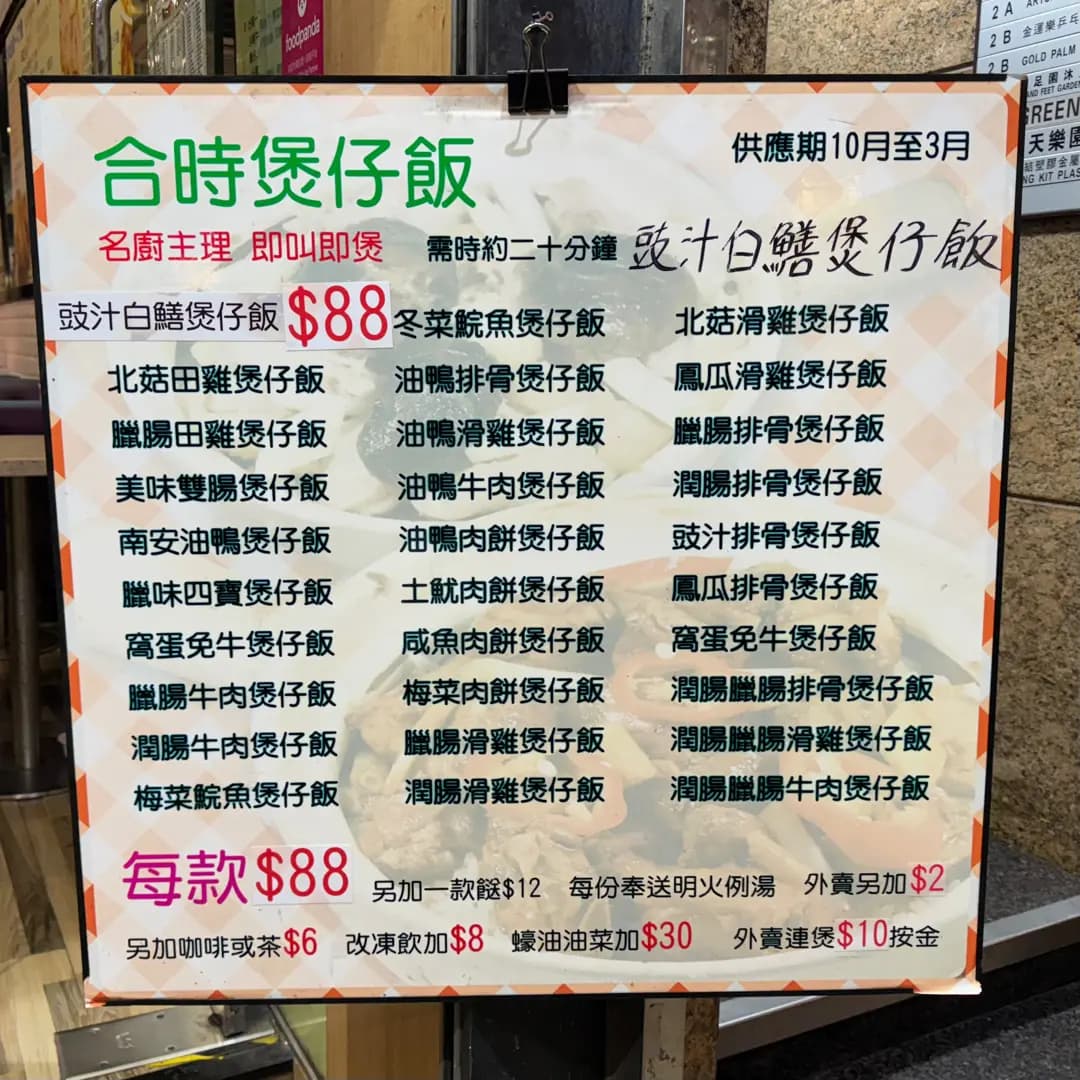 foodpanda
2 A
2 B 金運樂乒乓
2 B GOLD PALM
足園沐
AND FEET GARDEN
GREEN
天樂園
NG KIT PLAS
合時煲仔飯
供應期10月至3月
名廚主理 即叫即煲 需時約二十分鐘 豉汁白鱔煲仔飯
豉汁白鱔煲仔飯 $88 冬菜鯇魚煲仔飯 北菇滑雞煲仔飯
北菇田雞煲仔飯 油鴨排骨煲仔飯 鳳瓜滑雞煲仔飯
臘腸田雞煲仔飯 油鴨滑雞煲仔飯 臘腸排骨煲仔飯
美味雙腸煲仔飯 油鴨牛肉煲仔飯 潤腸排骨煲仔飯
南安油鴨煲仔飯 油鴨肉餅煲仔飯 豉汁排骨煲仔飯
臘味四寶煲仔飯 土魷肉餅煲仔飯 鳳瓜排骨煲仔飯
窩蛋免牛煲仔飯 咸魚肉餅煲仔飯 窩蛋免牛煲仔飯
臘腸牛肉煲仔飯 梅菜肉餅煲仔飯 潤腸臘腸排骨煲仔飯
潤腸牛肉煲仔飯 臘腸滑雞煲仔飯 潤腸臘腸滑雞煲仔飯
梅菜鯇魚煲仔飯 潤腸滑雞煲仔飯 潤腸臘腸牛肉煲仔飯
每款$88 另加一款餸$12 每份奉送明火例湯 外賣另加$2
另加咖啡或茶$6 改凍飲加$8 蠔油油菜加$30 外賣連煲$10按金